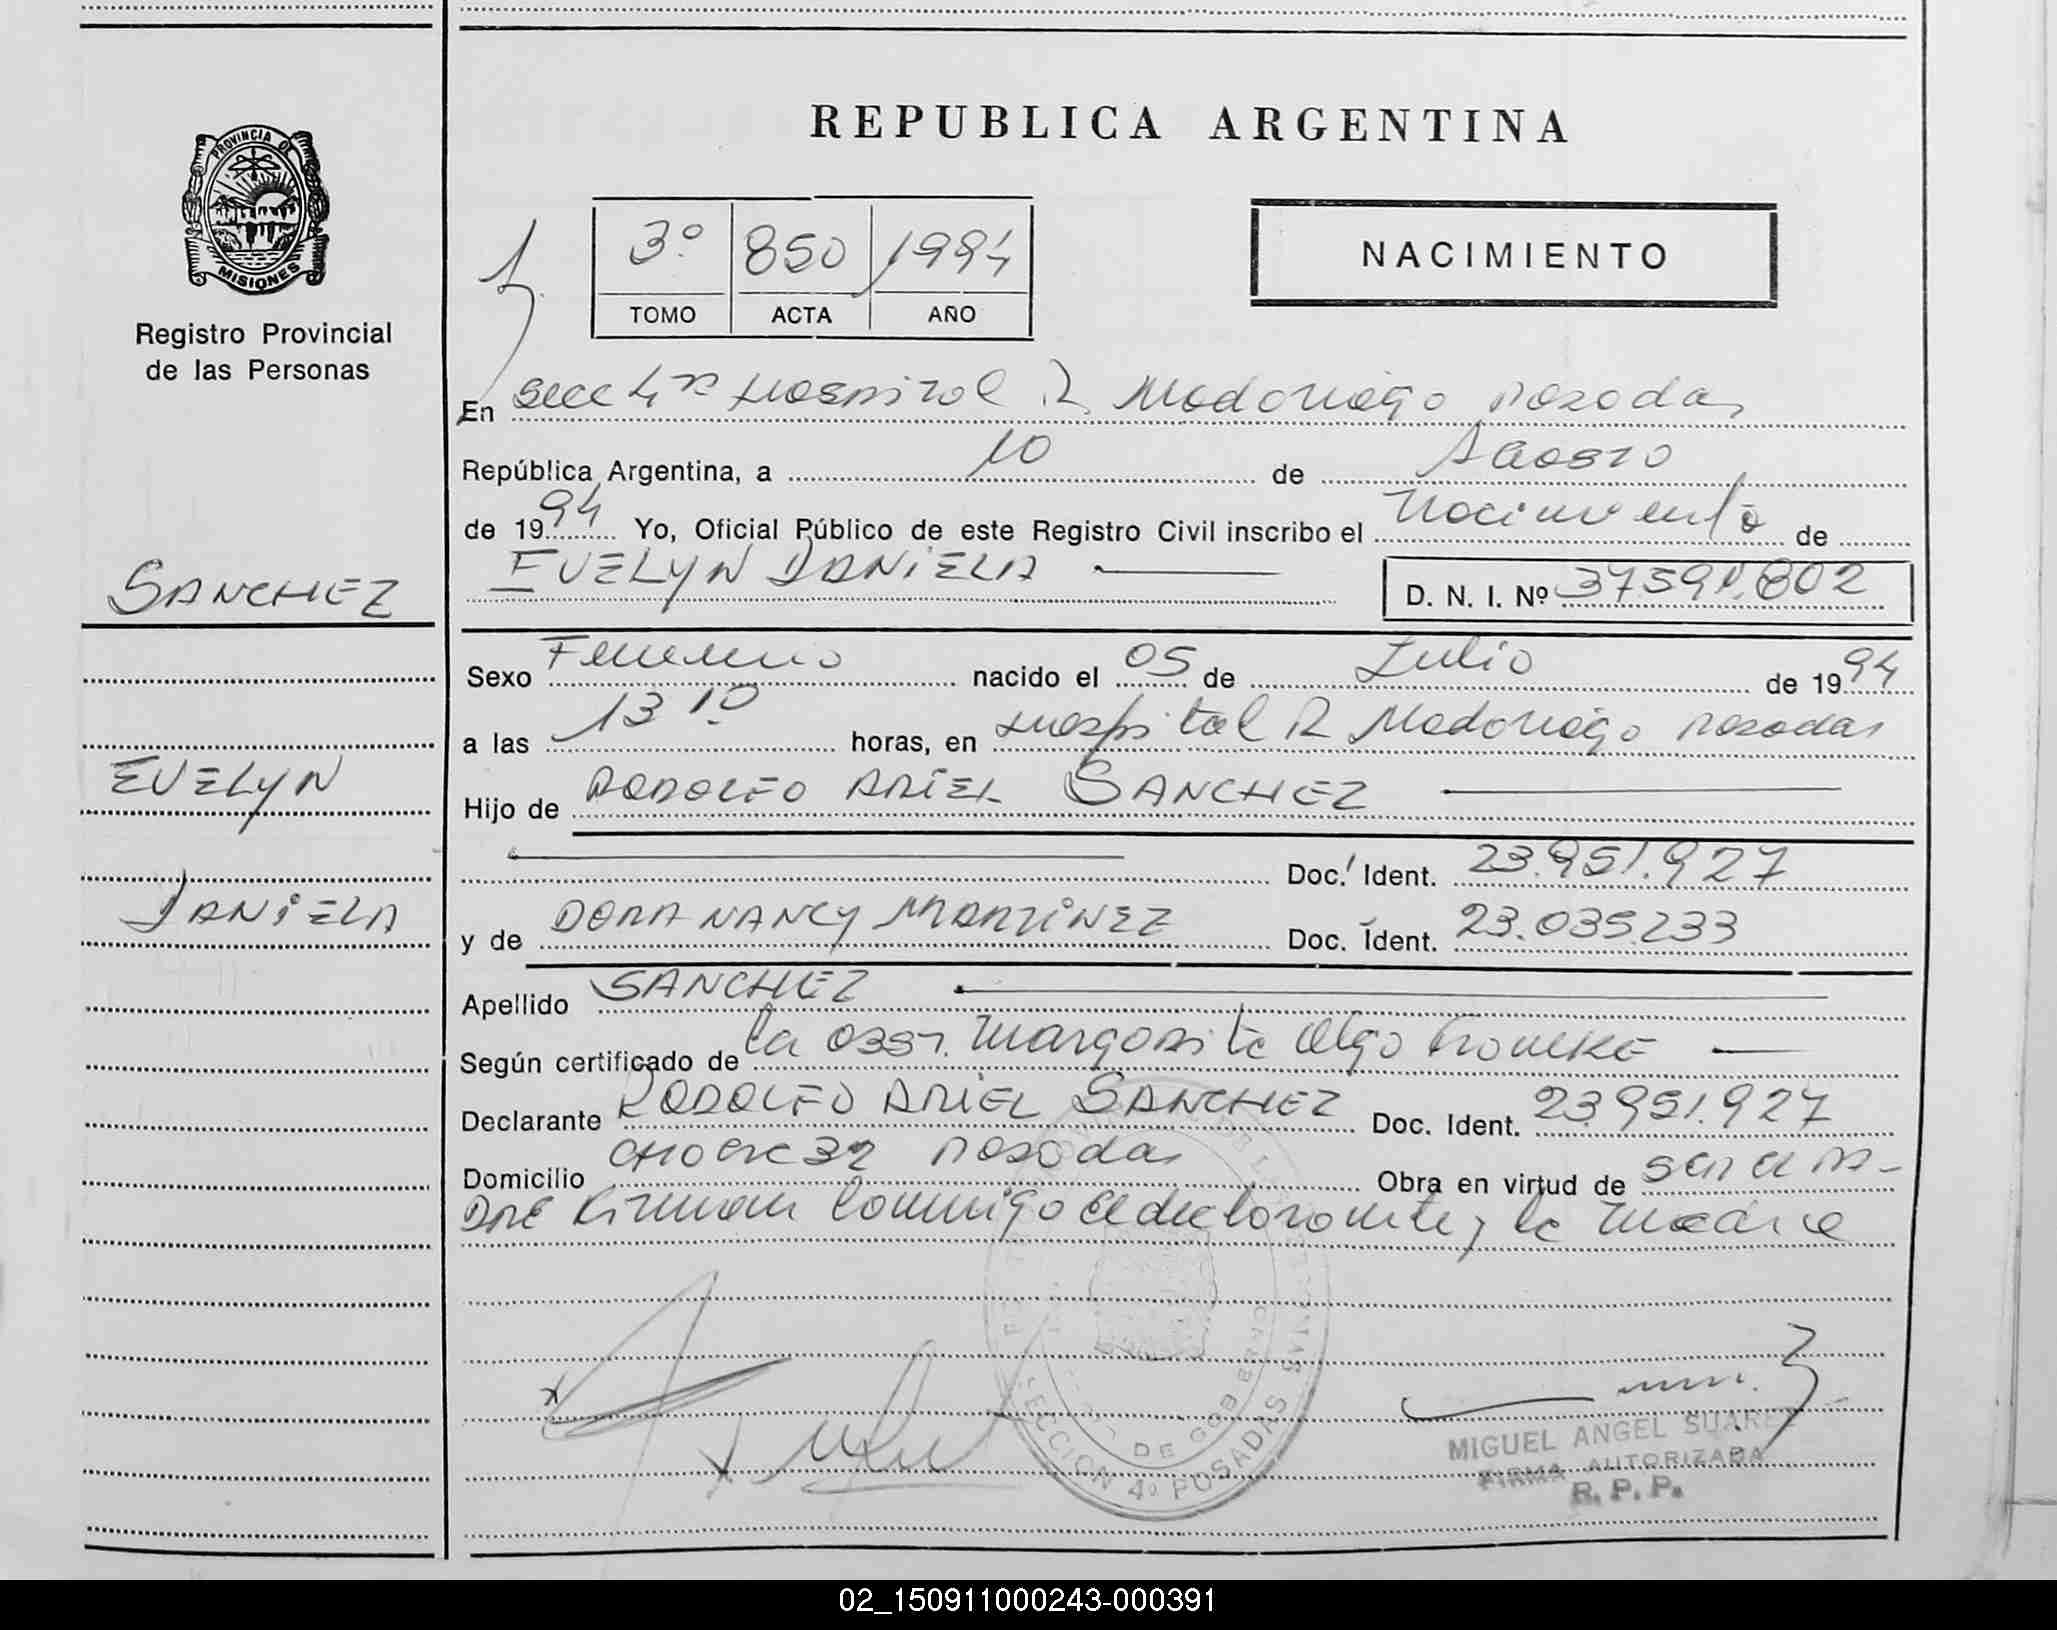 REPUBLICA ARGENTINA
PROVINCIA DE
MISIONES
Registro Provincial
de las Personas
3º 850 1994
TOMO ACTA AÑO
NACIMIENTO
En Secc 4ta Hospital R Madariaga Posadas
República Argentina, a 10 de Agosto
de 1994 Yo, Oficial Público de este Registro Civil inscribo el Nacimiento de
EVELYN DANIELA D. N. I. Nº
SANCHEZ
Sexo Femenino nacido el 05 de Julio de 1994
a las 13 10 horas, en Hospital R Madariaga Posadas
EVELYN
Hijo de RODOLFO ARIEL SANCHEZ
Doc. Ident. 23.951.927
DANIELA
y de DORA NANCY MARTINEZ Doc. Ident. 23.035.233
Apellido SANCHEZ
Según certificado de la Obst. Margarita Olga
Declarante RODOLFO ARIEL SANCHEZ Doc. Ident. 23951.927
Domicilio 32 Posadas Obra en virtud de ser el PA-
DRE Firman conmigo el declarante y la madre
SECCION 4º POSADAS
MIGUEL ANGEL SUAREZ
FIRMA AUTORIZADA
R. P. P.
02_150911000243-000391